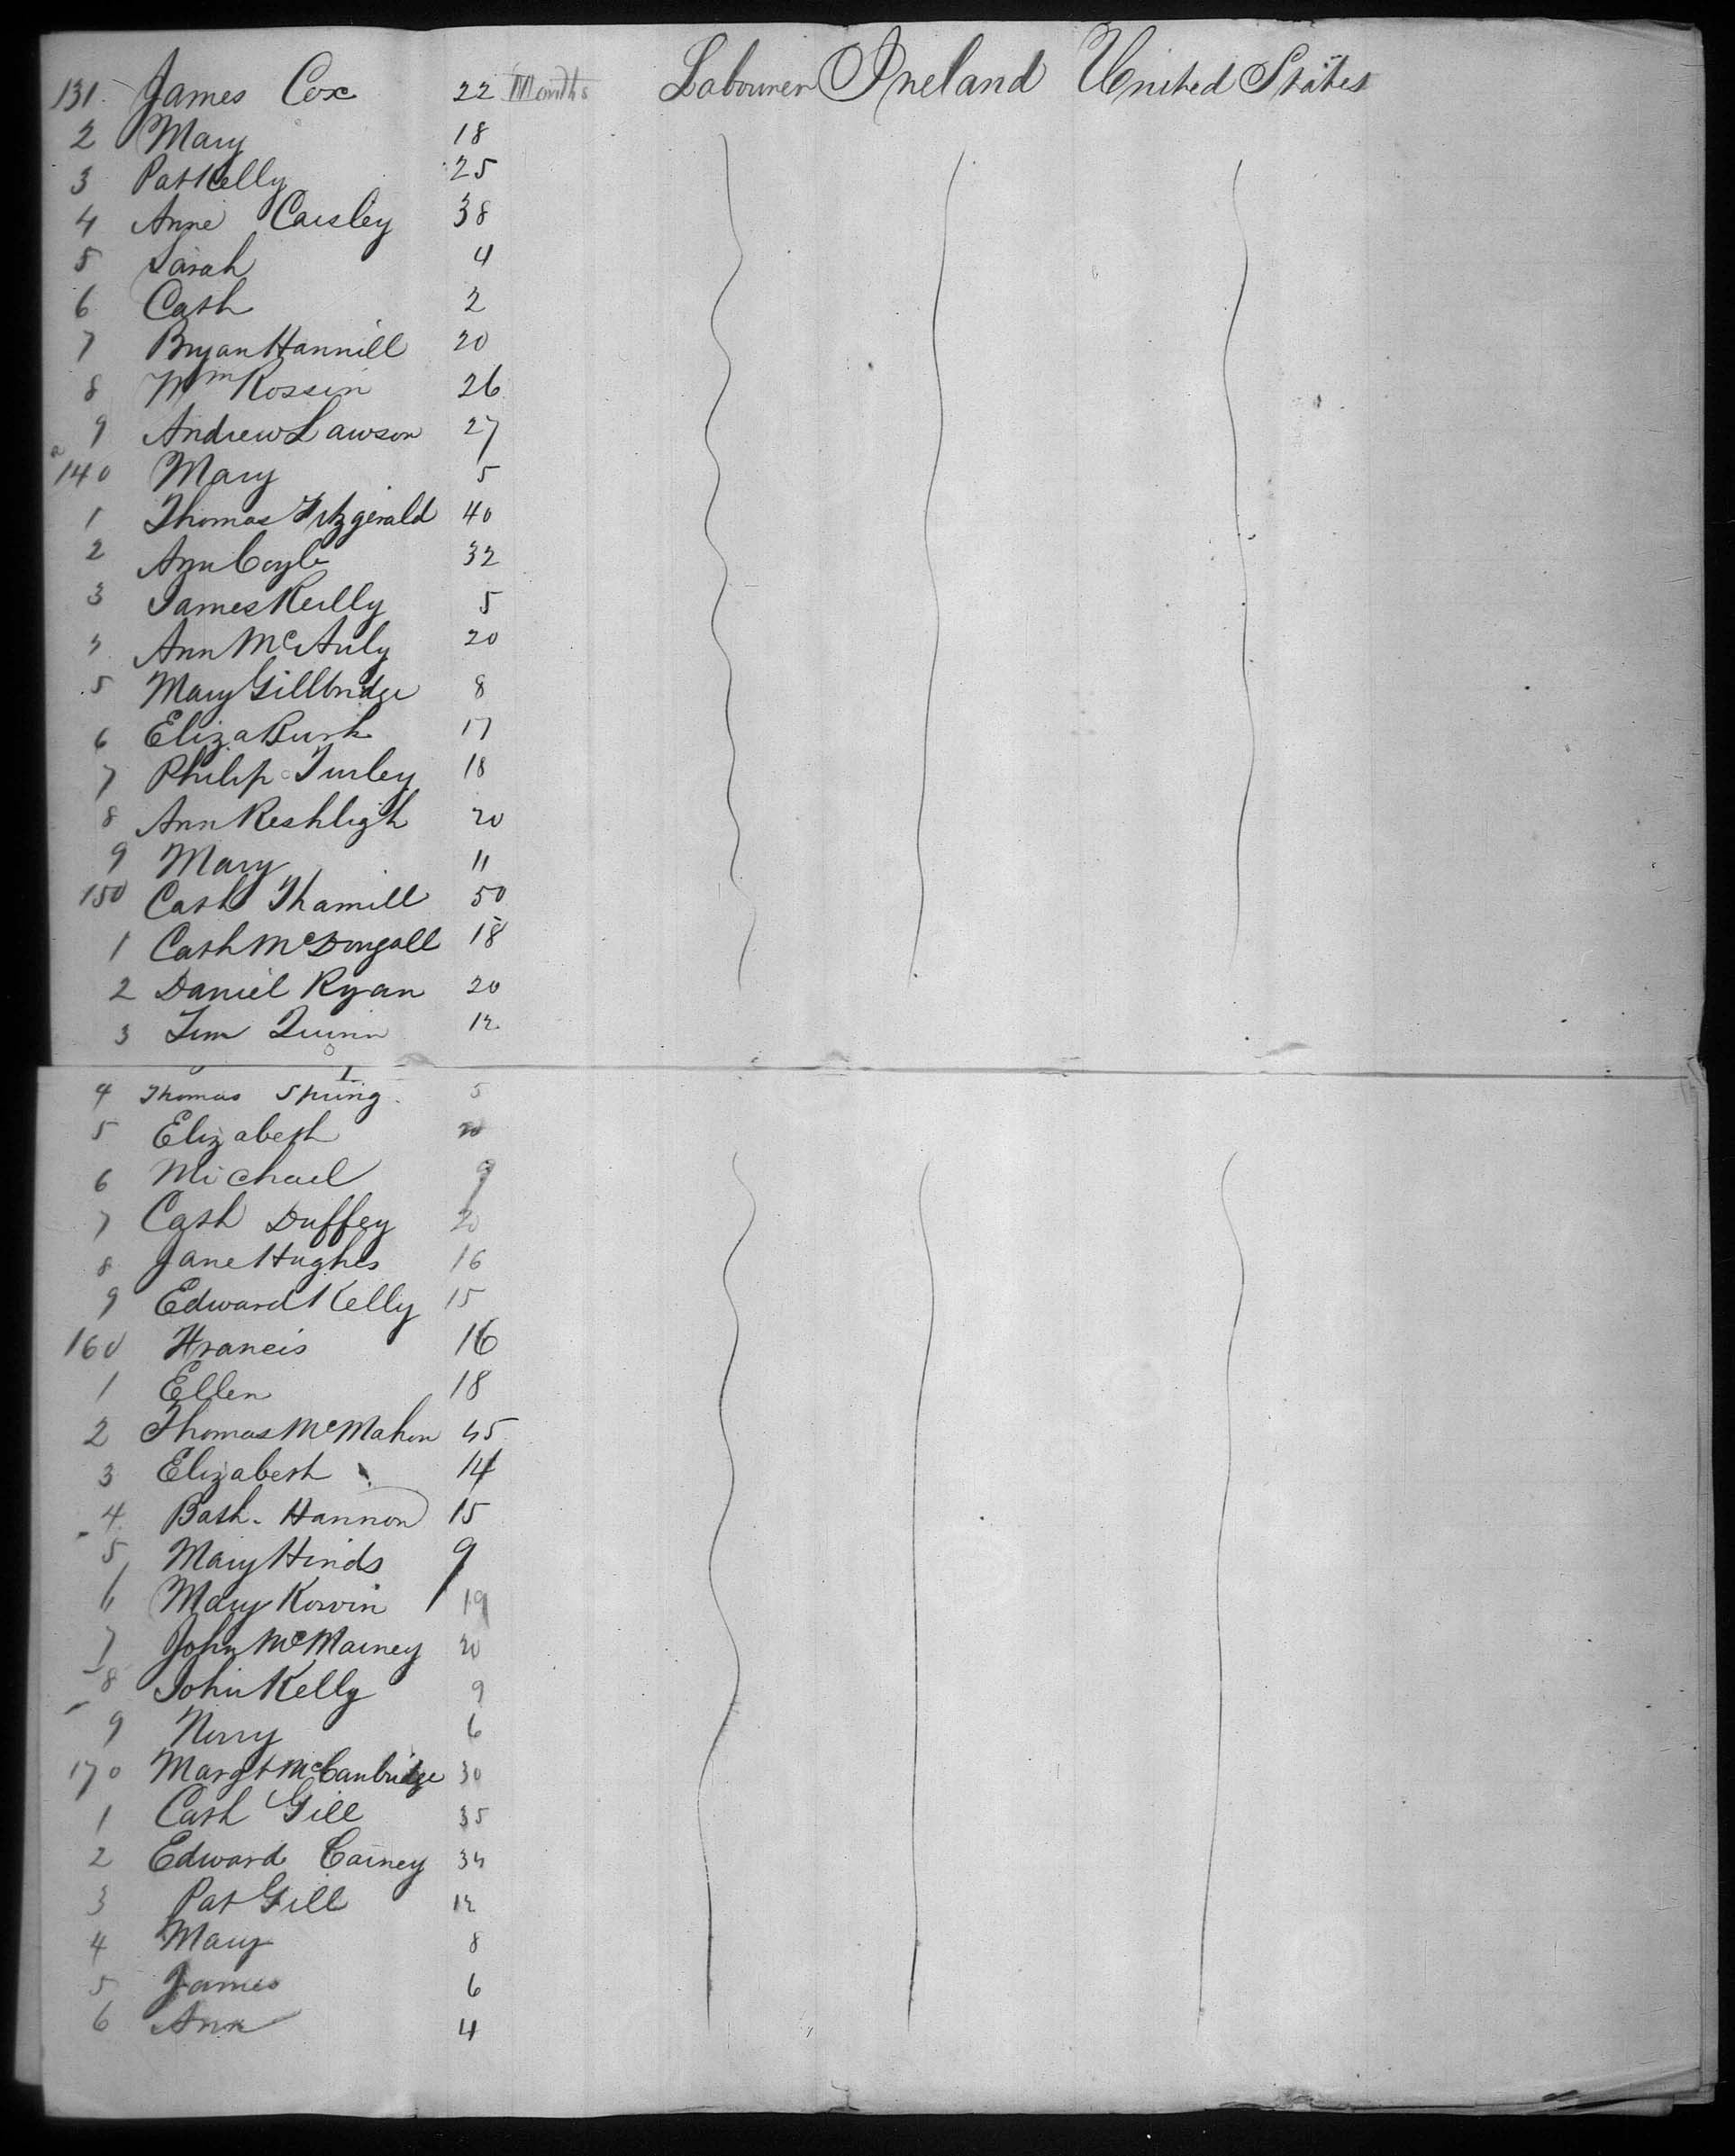 131 James Cox 22 Months Labourer Ireland United States
2 Mary 18
3 Pat Kelly 25
4 Anne Caisley 38
5 Sarah 4
6 Cath 2
7 Bryan Hannill 20
8 Wm Rossin 26
9 Andrew Lawson 27
140 Mary 5
1 Thomas Fitzgerald 40
2 Ann Coyle 32
3 James Reilly 5
Ann McAuly 20
5 Mary Gillbridge 8
6 Eliza Burk 17
7 Philip Turley 18
8 Ann Reshligh 20
9 Mary 11
150 Cath Thamill 50
1 Cath McDougall 18
2 Daniel Ryan 20
3 Tim Quinn 12
4 Thomas Spring 5
5 Elizabeth 20
6 Michael 9
7 Cath Duffey 20
8 Jane Hughes 16
9 Edward Kelly 15
160 Francis 16
1 Ellen 18
2 Thomas McMahon 45
3 Elizabeth 14
4 Bath. Hannon 15
5 Mary Hinds 9
6 Mary Korvin 19
7 John McMainey 20
8 John Kelly 9
9 Norry 6
170 Margt McCanbridge 30
1 Cath Gill 35
2 Edward Cainey 34
3 Pat Gill 12
4 Mary 8
5 James 6
6 Ann 4